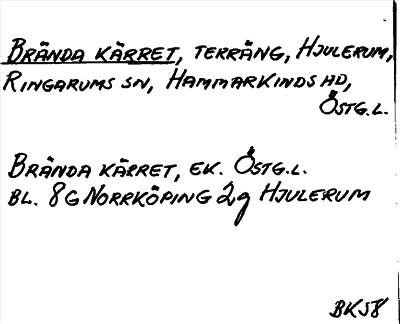 BRÄNDA KÄRRET, TERRÄNG, HJULERUM,
RINGARUMS SN, HAMMARKINDS HD,
ÖSTG.L.
BRÄNDA KÄRRET, EK. ÖSTG.L.
BL. 8G NORRKÖPING 2g HJULERUM
BK58